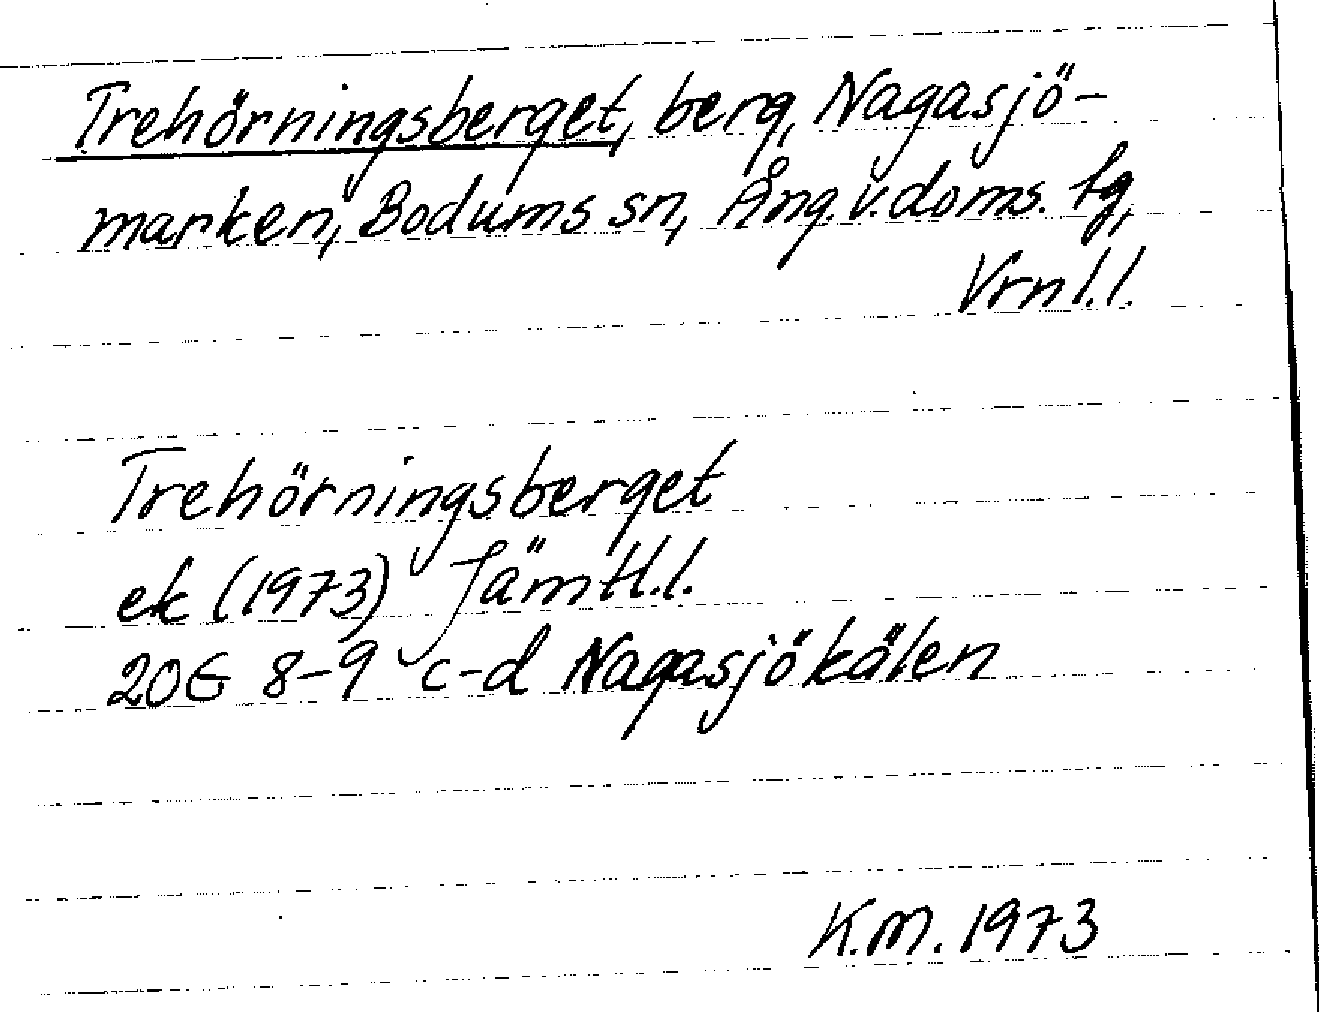 Trehörningsberget, berg, Nagasjö-
marken, Bodums sn, Ång.v.doms. tg,
Vrnl.l.
Trehörningsberget
ek (1973) Jämtl.l.
20G 8-9 c-d Nagasjökälen
K.M. 1973